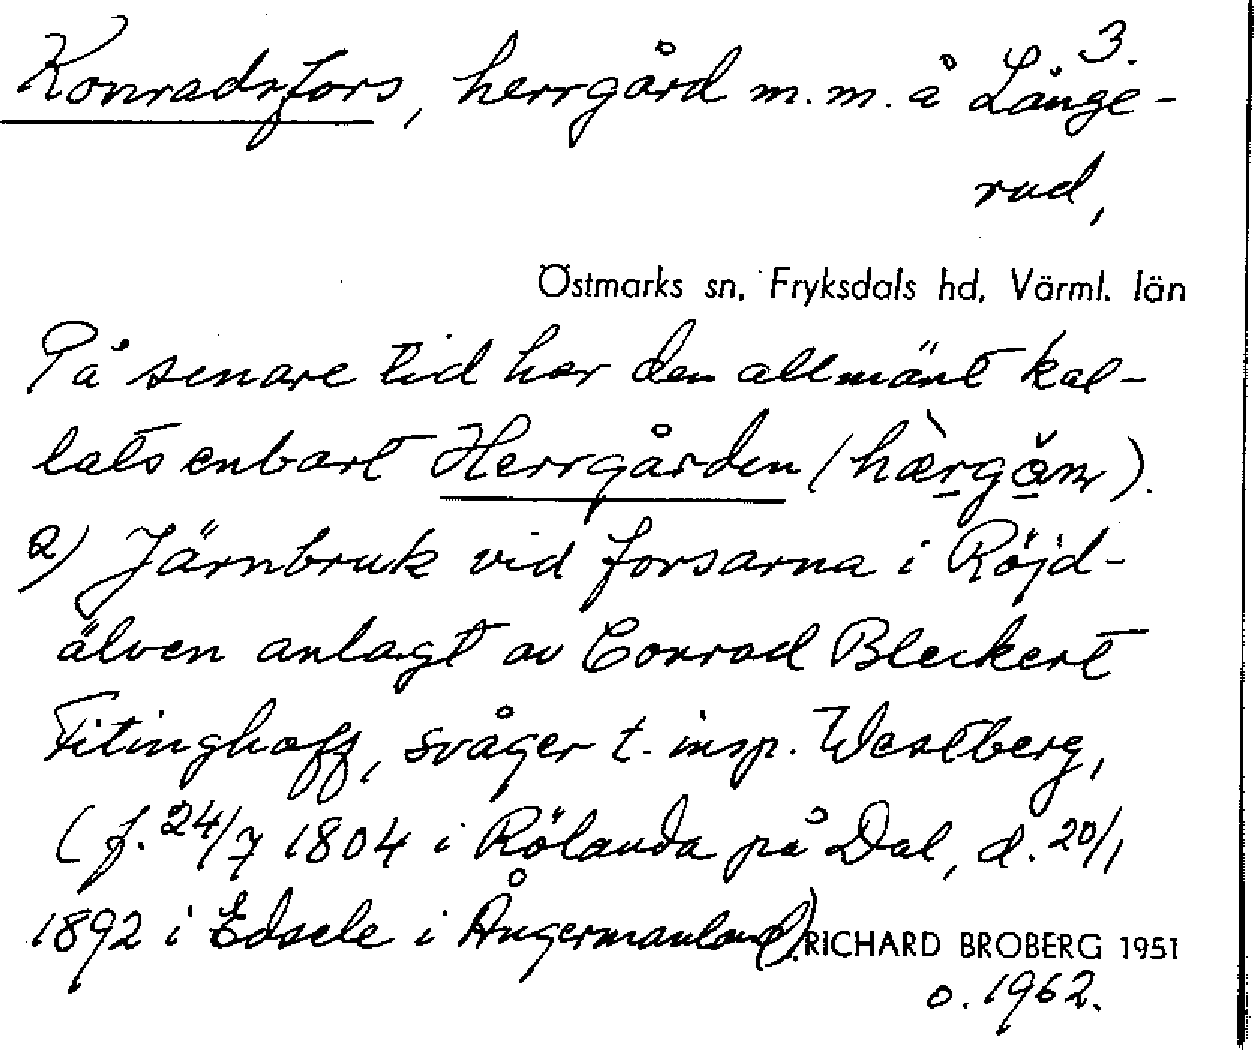 3.
Konradsfors, herrgård m.m. å Långe-
rud,
Östmarks sn, Fryksdals hd, Värml. län
På senare tid har den allmänt kal-
lats enbart Herrgården (hæ̀rgǻn).
2) Järnbruk vid forsarna i Röjd-
älven anlagt av Conrad Bleckert
Fitinghoff, svåger t. insp. Westberg,
(f. 24/7 1804 i Rölanda på Dal, d. 20/1
1892 i Edsele i Ångermanland).
RICHARD BROBERG 1951
o. 1962.